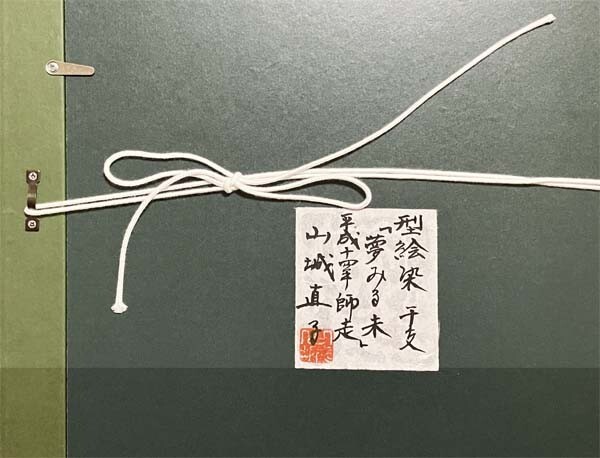 型絵染 干支
「夢みる未」
平成十四年 師走
山城直子